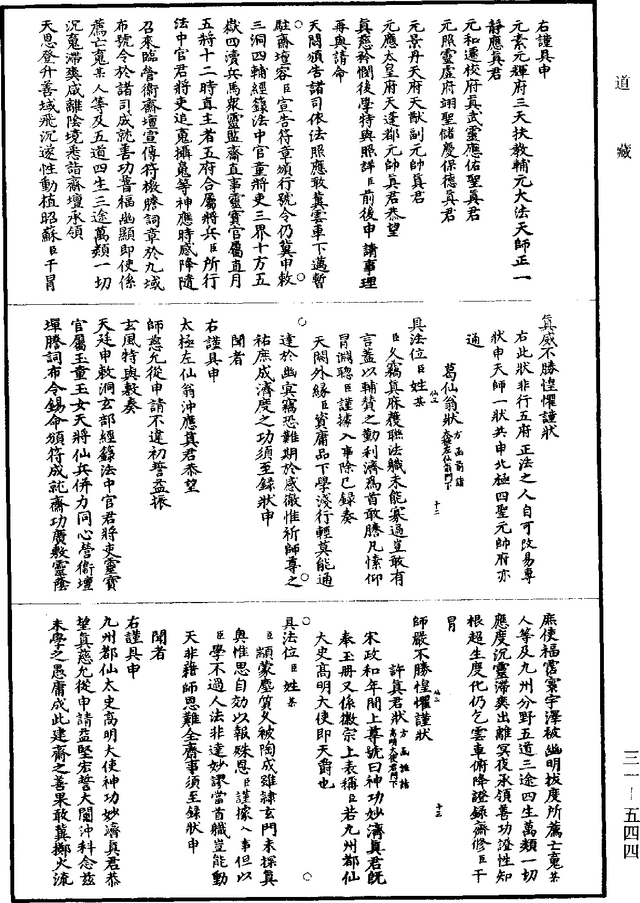 道藏
右謹具申
元素元輝府三天扶教輔元大法天師正一
靜應真君
元和遷校府真武靈應佑聖真君
元照靈虛府翊聖儲慶保德真君
元景丹天府天猷副元帥真君
元應太皇府天蓬都元帥真君恭望
真慈衿憫後學特與照詳臣前後申請事理
再與請命
天闕頒告諸司依法照應敢冀雲車下邁暫
駐齋壇容臣宣告符章頒行號令仍冀申敕
三洞四輔經籙法中官童將吏三界十方五
嶽四瀆兵馬眾靈監齋直事靈寶官屬直月
五將十二時直主者五府合屬將兵臣所行
法中官君將吏追䰟攝䰟等神應時咸降隨
召來臨營衛齋壇宣傳符檄謄詞章於九域
布號令於諸司成就善功普福幽顯即使係
薦亡䰟某人等及五道四生三途萬類一切
沉䰟滯爽咸離陰境悉詣齋壇承領
天恩登升善域飛沉遂性動植昭蘇臣干冒
真威不勝惶懼謹狀
右此狀非行五府正法之人自可改易專
狀申天師一狀共申北極四聖元帥府亦
通
葛仙翁狀方函前諸
具法位臣姓某
臣久竊真庥獲聯法職未能寡過豈敢有
言蓋以輔贊之勤利濟為首敢謄凡愫仰
冒淵聰臣謹據入事除已錄奏
天闕外緣臣資庸品下學淺行輕莫能通
達於幽冥竊恐難期於感徹惟祈師尊之
祐庶成濟度之功須至錄狀申
聞者
右謹具申
太極左仙翁沖應真君恭望
師慈允從申請不違初誓益振
玄風特與敷奏
天廷申敕洞玄部經籙法中官君將吏靈寶
官屬玉童玉女天將仙兵併力同心營衛壇
墠謄詞布令錫命頒符成就齋功廣敷靈蔭
庶使福霑寰宇澤被幽明拔度所薦亡䰟某
人等及九州分野五道三途四生萬類一切
應度沉靈滯爽出離冥夜承領善功證性知
根超生度化仍乞雲車俯降證錄齋修臣干
冒
師嚴不勝惶懼謹狀
許真君狀方函推諸高明大使君門下
宋政和年間上尊號曰神功妙濟真君既
奉玉冊又係徽宗上表稱臣若九州都仙
大史高明大使即天爵也
具法位臣姓某
臣顓蒙塵質久被陶成雖隸玄門未探真
奧惟思自効以報殊恩臣謹據入事但以
臣學不過人法非達妙謬當首職豈能動
天非藉師恩難全齋事須至錄狀申
聞者
右謹具申
九州都仙太史高明大使神功妙濟真君恭
望真慈允從申請益堅宏誓大闡沖科念茲
末學之愚庸成此建齋之善果敢冀擲火流
三一－五四四